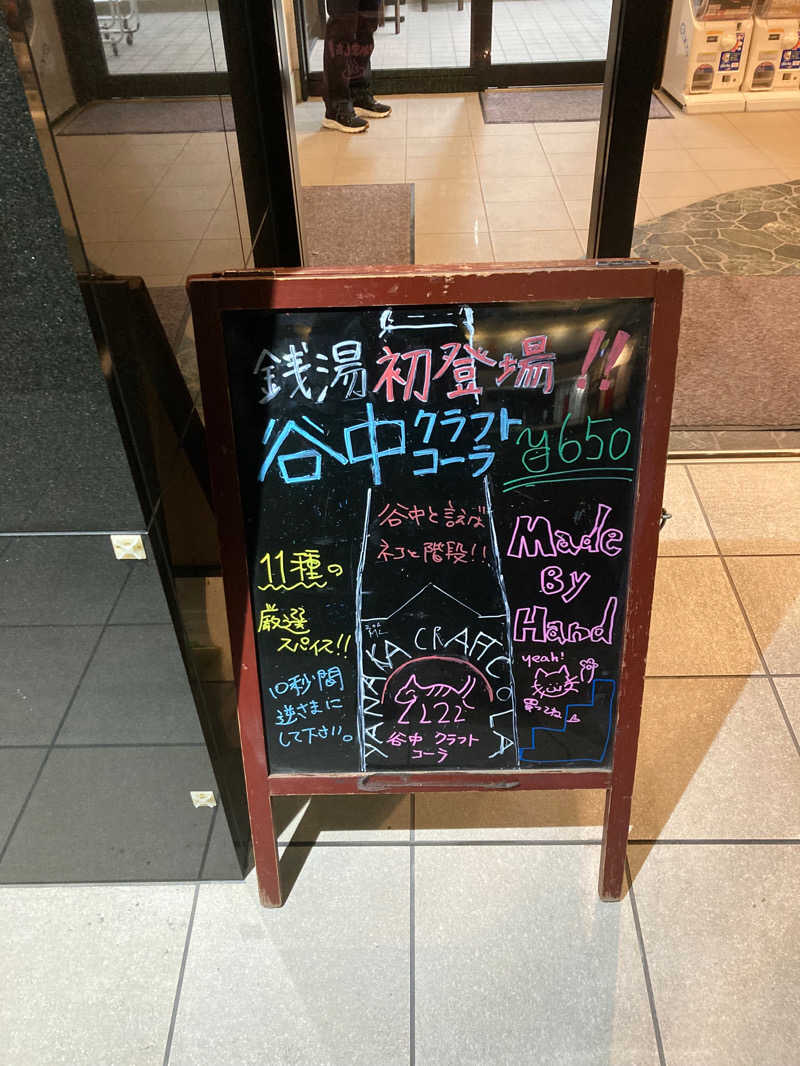 銭湯初登場!!
谷中クラフトコーラ ¥650
谷中と言えば
ネコと階段!!
11種の
厳選
スパイス!!
10秒間
逆さまに
して下さい。
YANAKA CRAFT COLA
谷中 クラフト
コーラ
Made
By
Hand
yeah!
買ってね